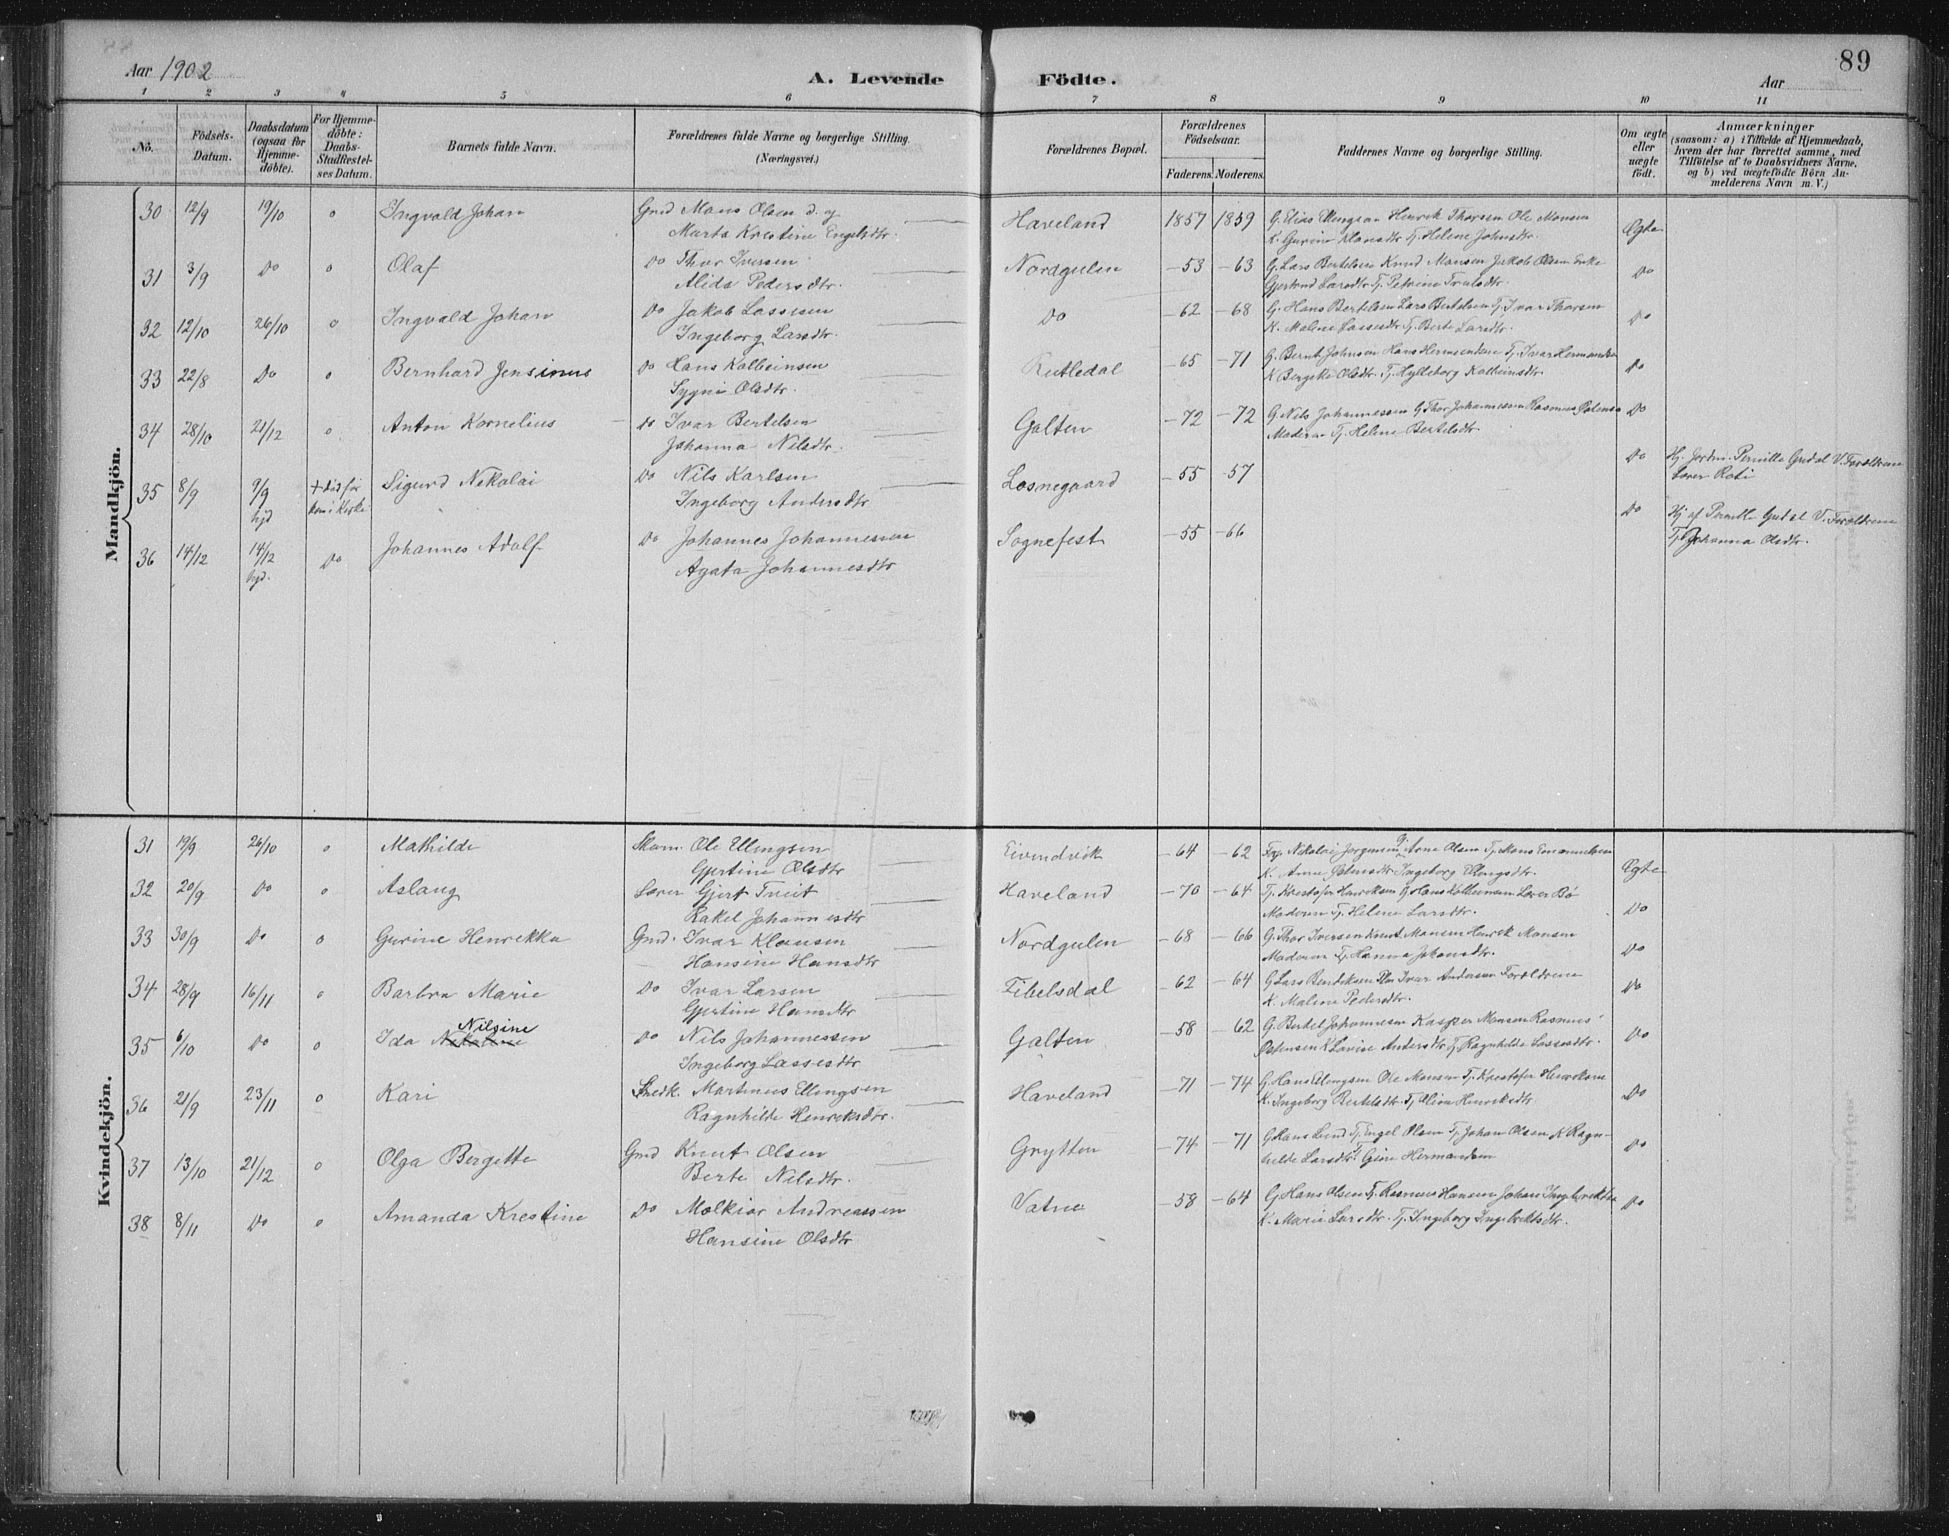 89
Aar 1902
A. Levende Födte.
Aar
1 2 3 4 5 6 7 8 9 10 11
No.
Födsels-Datum.
Daabsdatum (ogsaa for Hjemmedöbte).
For Hjemmedöbte: Daabs-Stadfæstelses Datum.
Barnets fulde Navn.
Forældrenes fulde Navne og borgerlige Stilling. (Næringsvei.)
Forældrenes Bopæl.
Forældrenes Födselsaar.
Faderens. Moderens.
Faddernes Navne og borgerlige Stilling.
Om ægte eller uægte födt.
Anmærkninger
(saasom: a) i Tilfælde af Hjemmedaab, hvem der har forrettet samme, med Tilföielse af to Daabsvidners Navne, og b) ved uægtefödte Börn Anmelderens Navn m. V.)
Mandkjön.
30 12/9 19/10 o Ingvald Johan Gmd Mons Olsen d. og Haveland 1857 1859 G. Elias Ellingsen Henrik Thorsen Ole Monsen Ægte
Marta Kristine Engelsdtr. K. Gurine Klausdtr Tj. Helene Johnsdtr.
31 3/9 Do o Olaf Do Thor Iversen Nordgulen -53 -63 G. Lars Bertelsen Knud Monsen Jakob Olsen Enke Do
Alida Pedersdtr. Gjertrud Larsdtr Tj. Petrine Trulsdtr.
32 12/10 26/10 o Ingvald Johan Do Jakob Lassesen Do -62 -68 G. Hans Bertelsen Lars Bertelsen Tj. Ivar Thorsen Do
Ingeborg Larsdtr. K. Malene Lassesdtr Tj. Berte Larsdtr.
33 22/8 Do o Bernhard Jensinus Do Hans Kolbeinsen Rutledal -65 -71 G. Bernt Johnsen Hans Tj. Ivar Hermansen Do
Sygni Olsdtr. K Olsdtr. Tj. Kolbeinsdtr.
34 28/10 21/12 o Anton Kornelius Do Ivar Bertelsen Galten -72 -72 G. Nils Johannessen G Thor Johannessen Rasmus Do
Johanna Nilsdtr. Moderen Tj. Helene Bertelsdtr.
35 8/9 9/9 hjd + død før kom i Kirke Sigurd Nikolai Do Nils Karlsen Losnegaard -55 -57 Do Hj. Jordm. Pernille Gredal V. Forældrene
Ingeborg Andersdtr Lærer
36 14/12 14/12 hjd. Do Johannes Adolf Do Johannes Johannessen Sognefest -55 -66 Do Hj af Pernille V. Forældrene
Agata Johannesdtr Tj. Johanna Olsdtr.
Kvindekjön.
31 19/9 26/10 o Mathilde Skom. Ole Ellingsen Eivindvik -64 -62 Nikolai Jørgensen G Arne Olsen Tj. Ægte
Gjertine Olsdtr K. Anne Ingeborg Ellingsdtr.
32 20/9 Do o Aslaug Lærer Gjert Tveit Haveland -70 -64 Tj. Kristofer Henriksen G Hans Kolbeinsen Lærer Bø Do
Rakel Johannesdtr Moderen Tj. Helene Larsdtr.
33 30/9 Do o Gurine Henrikka Gmd. Ivar Klausen Nordgulen -68 -66 G. Thor Iversen Knut Monsen Henrik Monsen Do
Hansine Hansdtr Moderen Tj. Hanna Johansdtr.
34 28/9 16/11 o Barbra Marie Do Ivar Larsen Fibelsdal -62 -64 G Lars Bendiksen Ivar Andersen Forældrene Do
Gjertine Hansdtr K. Malene Pedersdtr.
35 6/10 Do o Ida Nilsine Do Nils Johannessen Galten -58 -62 G. Bertel Johannesen Kasper Monsen Rasmus Do
Ingeborg Lassesdtr Østensen K Lovise Andersdtr Tj. Ragnhilde Lassesdtr.
36 21/9 23/11 o Kari Martinus Ellingsen Haveland -71 -74 G. Hans Ellingsen Ole Monsen Tj. Kristofer Henriksen Do
Ragnhilde Henriksdtr. K. Ingeborg Bertelsdtr. Tj. Henriksdtr
37 13/10 21/12 o Olga Bergette Gmd Knut Olsen Grytten -74 -71 G Hans Lund Tj. Engel Olsen Tj. Johan Olsen K Ragn- Do
Berte Nilsdtr. hilde Larsdtr. Tj. Hermansen
38 8/11 Do o Amanda Krestine Do Molkior Andreassen Vatne -58 -64 G Hans Olsen Tj. Rasmus Hansen Johan Do
Hansine Olsdtr K. Marie Larsdtr. Tj. Ingeborg Ingebriktsdtr.